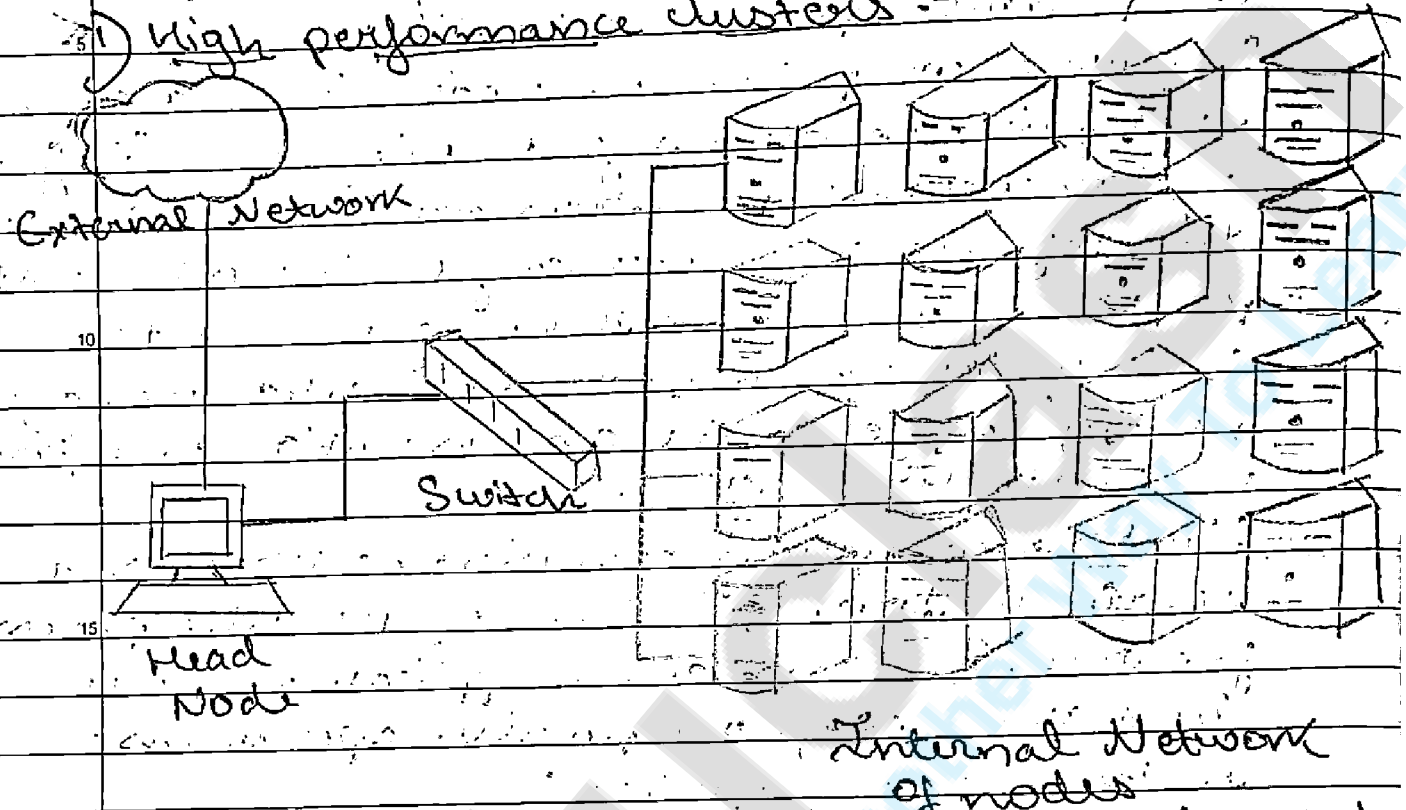 1) High performance clusters -
5
External Network
10
Switch
15
Head
Node
Internal Network
of nodes